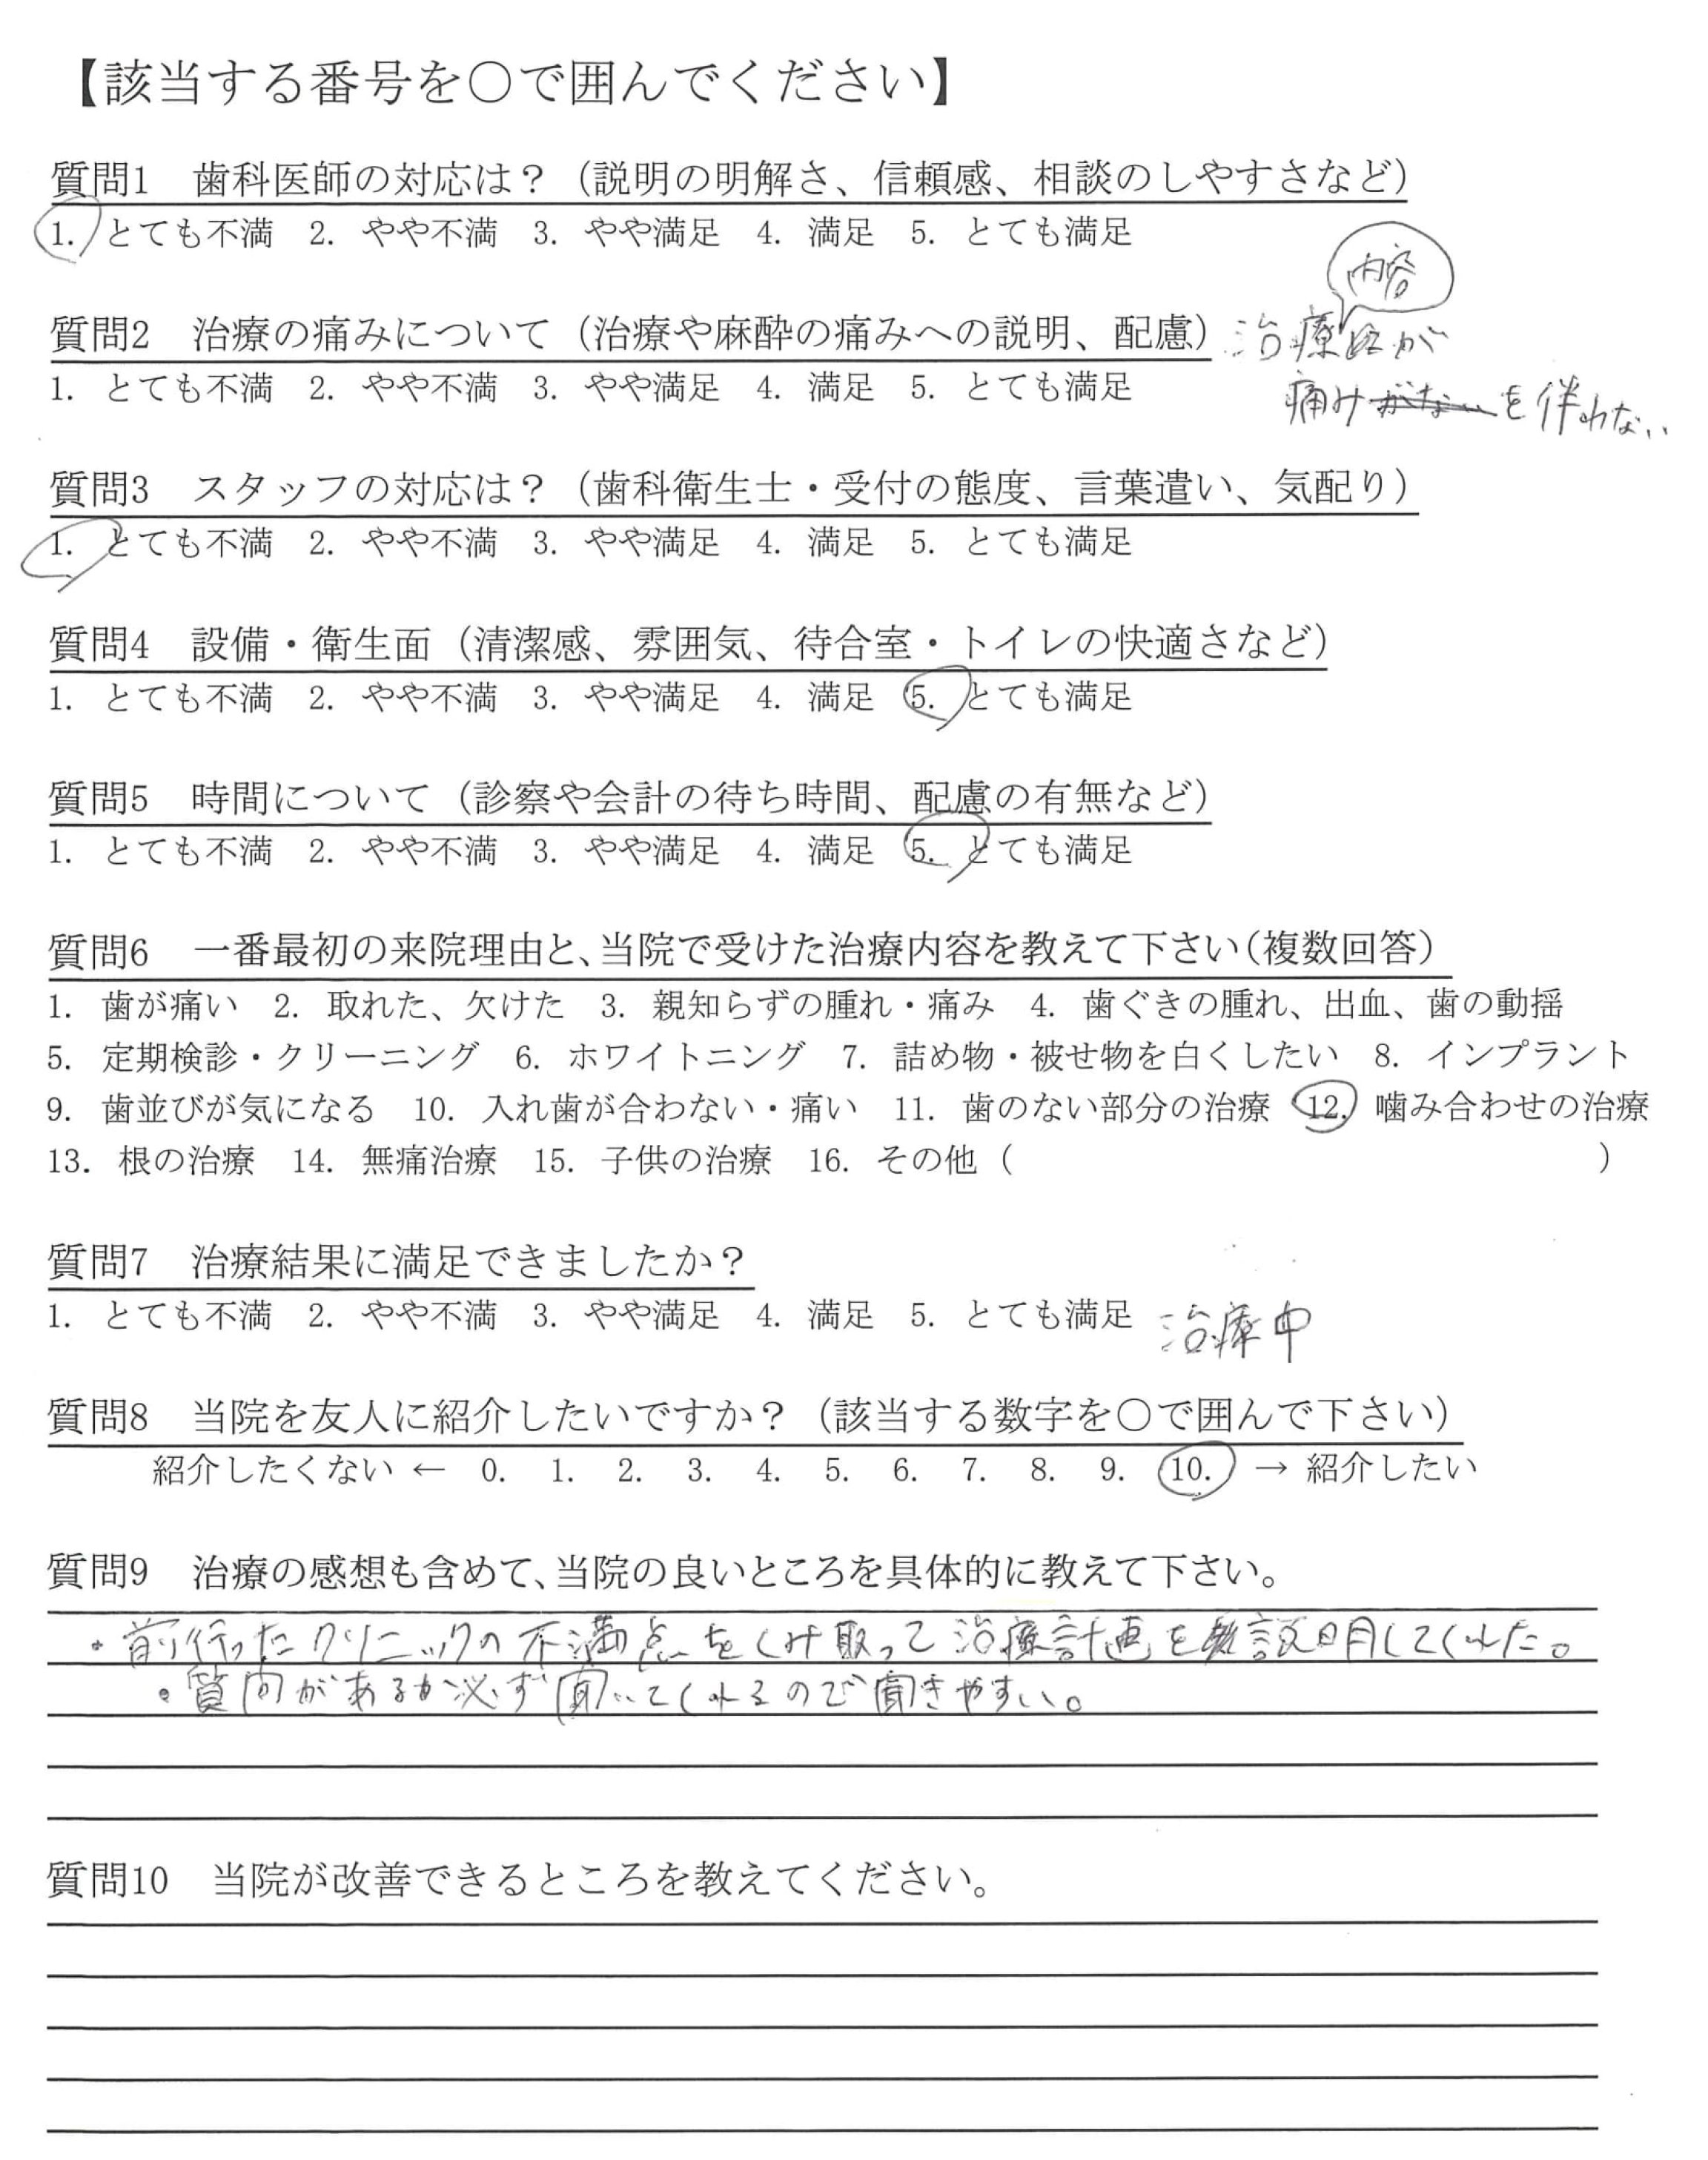 【該当する番号を〇で囲んでください】
質問1　歯科医師の対応は？（説明の明解さ、信頼感、相談のしやすさなど）
1. とても不満　2. やや不満　3. やや満足　4. 満足　5. とても満足
内容
質問2　治療の痛みについて（治療や麻酔の痛みへの説明、配慮）治療が
1. とても不満　2. やや不満　3. やや満足　4. 満足　5. とても満足　痛みがないを伴わない
質問3　スタッフの対応は？（歯科衛生士・受付の態度、言葉遣い、気配り）
1. とても不満　2. やや不満　3. やや満足　4. 満足　5. とても満足
質問4　設備・衛生面（清潔感、雰囲気、待合室・トイレの快適さなど）
1. とても不満　2. やや不満　3. やや満足　4. 満足　5. とても満足
質問5　時間について（診察や会計の待ち時間、配慮の有無など）
1. とても不満　2. やや不満　3. やや満足　4. 満足　5. とても満足
質問6　一番最初の来院理由と、当院で受けた治療内容を教えて下さい（複数回答）
1. 歯が痛い　2. 取れた、欠けた　3. 親知らずの腫れ・痛み　4. 歯ぐきの腫れ、出血、歯の動揺
5. 定期検診・クリーニング　6. ホワイトニング　7. 詰め物・被せ物を白くしたい　8. インプラント
9. 歯並びが気になる　10. 入れ歯が合わない・痛い　11. 歯のない部分の治療　12. 噛み合わせの治療
13. 根の治療　14. 無痛治療　15. 子供の治療　16. その他（　　　）
質問7　治療結果に満足できましたか？
1. とても不満　2. やや不満　3. やや満足　4. 満足　5. とても満足　治療中
質問8　当院を友人に紹介したいですか？（該当する数字を〇で囲んで下さい）
紹介したくない ← 0. 1. 2. 3. 4. 5. 6. 7. 8. 9. 10. → 紹介したい
質問9　治療の感想も含めて、当院の良いところを具体的に教えて下さい。
・前行ったクリニックの不満点をくみ取って治療計画を説明してくれた。
・質問があるか必ず聞いてくれるので聞きやすい。
質問10　当院が改善できるところを教えてください。